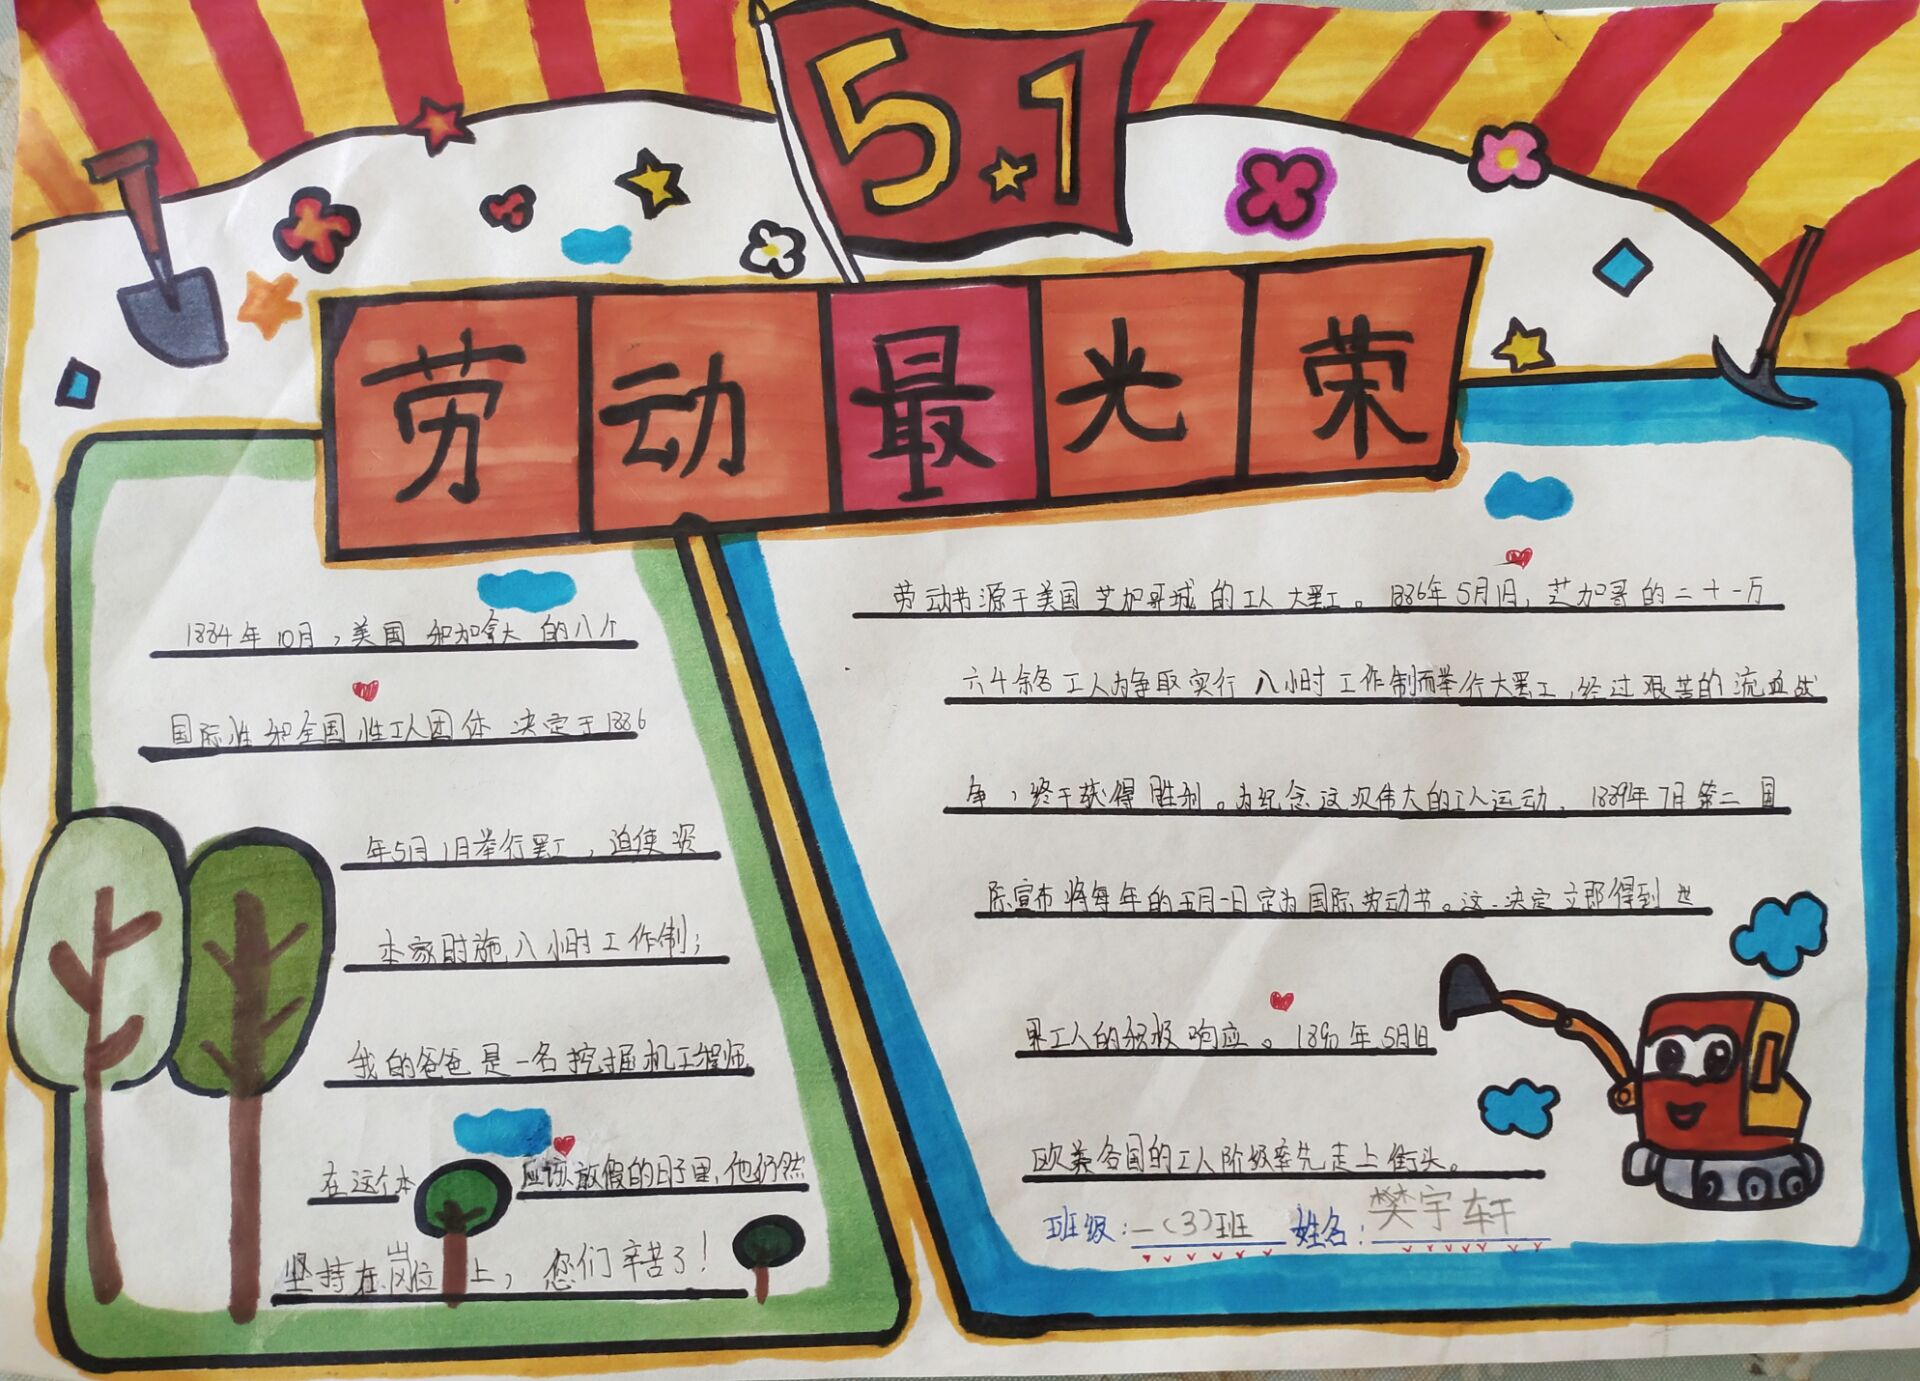 5.1
劳动最光荣
1884年10月，美国和加拿大的八个
国际性和全国性工人团体决定于1886
年5月1月举行罢工，迫使资
本家时施八小时工作制；
我的爸爸是一名挖掘机工程师
在这个本应该放假的日子里，他仍然
坚持在岗位上，您们辛苦了！
劳动节源于美国芝加哥城的工人大罢工。1886年5月1日，芝加哥的二十一万
六千余名工人为争取实行八小时工作制而举行大罢工，经过艰苦的流血战
争，终于获得胜利。为纪念这次伟大的工人运动，1889年7月第二国
际宣布将每年的五月一日定为国际劳动节。这一决定立即得到世
界工人的积极响应。1890年5月1日
欧美各国的工人阶级率先走上街头。
班级：一（3）班 姓名：樊宇轩